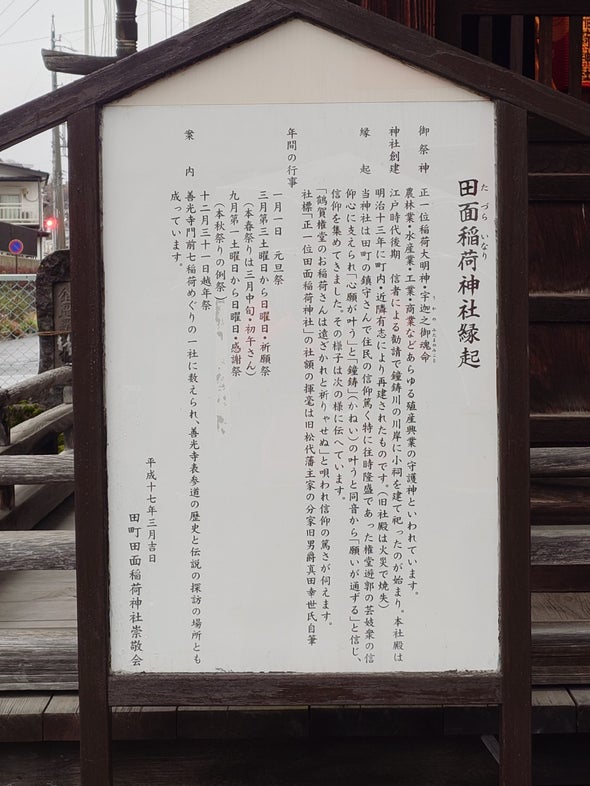 田面稲荷神社縁起
たづら いなり
御祭神 正一位稲荷大明神・宇迦之御魂命
農林業・水産業・工業・商業などあらゆる殖産興業の守護神といわれています。
神社創建 江戸時代後期 信者による勧請で鐘鋳川の川岸に小祠を建て祀ったのが始まり。本社殿は
明治十三年に町内・近隣有志により再建されたものです。（旧社殿は火災で焼失）
縁起 当神社は田町の鎮守さんで住民の信仰篤く特に往時隆盛であった権堂遊郭の芸妓衆の信
仰心に支えられ「心願が叶う」と「鐘鋳」（かねい）の叶うと同音から「願いが通ずる」と信じ、
信仰を集めてきました。その様子は次の様に伝へています。
「鶴賀権堂のお稲荷さんは遠ざかれと祈りゃせぬ」と唄われ信仰の篤さが伺えます。
社標「正一位田面稲荷神社」の社額の揮毫は旧松代藩主家の分家旧男爵真田幸世氏自筆
年間の行事
一月一日 元旦祭
三月第三土曜日から日曜日・祈願祭
（本春祭りは三月中旬・初午さん）
九月第一土曜日から日曜日・感謝祭
（本秋祭りの例祭）
十二月三十一日越年祭
案内 善光寺門前七稲荷めぐりの一社に数えられ、善光寺表参道の歴史と伝説の探訪の場所とも
成っています。
平成十七年三月吉日
田町田面稲荷神社崇敬会